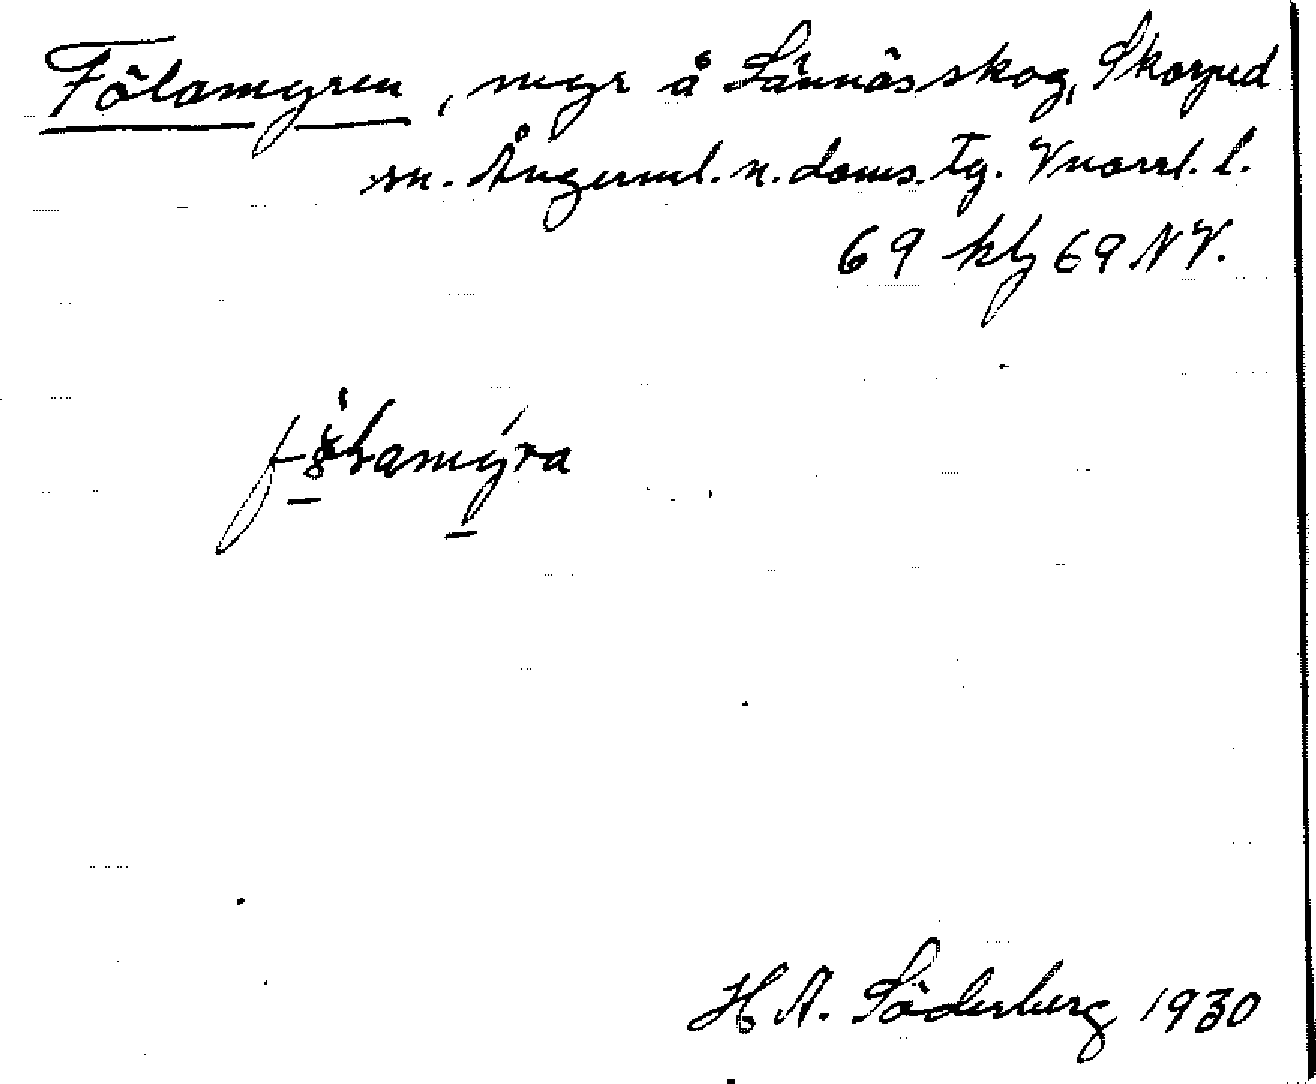 Fölamyren, myr å Lännäs skog, Skorped
sn. Ångerml. n. doms. tg. Vnorrl. l.
69 klj 69 NV.
H A. Söderberg 1930